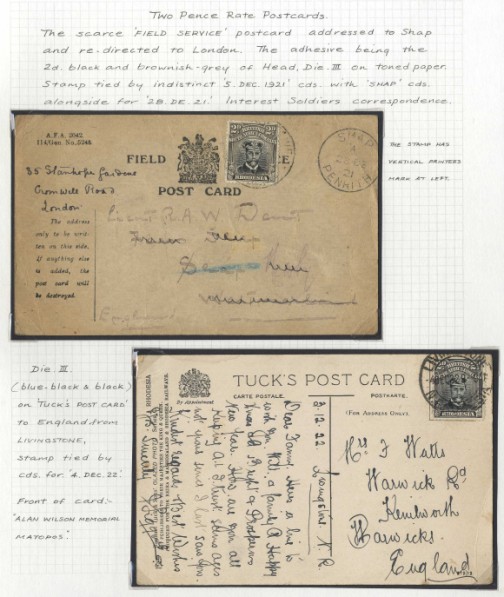 Two Pence Rate Postcards.
The scarce 'FIELD SERVICE' postcard addressed to Shap
and re-directed to London. The adhesive being the
2d. black and brownish-grey of Head, Die III on toned paper.
Stamp tied by indistinct '5. DEC. 1921' cds. with 'SHAP' cds.
alongside for '28. DE. 21.' Interest Soldiers correspondence.
A.F.A. 2042
114/Gen. No./5248
FIELD
POST CARD
RHODESIA
SHAP
21
PENRITH
THE STAMP HAS
VERTICAL PRINTERS
MARK AT LEFT.
35 Stanhope Gardens
Cromwell Road
London
The address
only to be writ-
ten on this side.
If anything else
is added, the
post card will
be destroyed.
Lieut R.A.W
England
Die III
(blue-black & black)
on 'TUCK'S POST CARD'
to England from
LIVINGSTONE,
Stamp tied by
cds. for '4. DEC. 22'
Front of card:-
'ALAN WILSON MEMORIAL
MATOPOS'.
By Appointment
TUCK'S POST CARD
CARTE POSTALE.
POSTKARTE.
(For Address Only).
RHODESIA
3.12.22 Livingstone N.R.
Dear Fanny. Here a line to
wish you Will & family A Happy
Xmas & A Bright & Prosperous
New Year. Hope are you all
Kindest regards & Best Wishes
Mrs F Watts
Warwick Rd
Kenilworth
Warwicks.
England